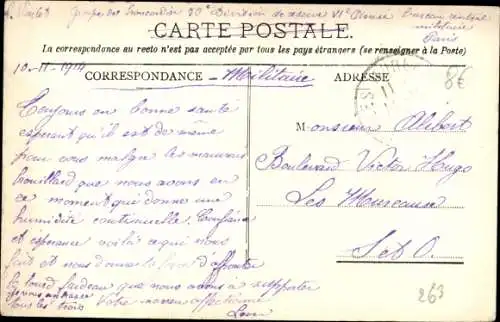 Groupe des 20e Division de réserve VIe Armée Bureau central
militaire
Paris
CARTE POSTALE.
La correspondance au recto n'est pas acceptée par tous les pays étrangers (se renseigner à la Poste)
10-11-1914
CORRESPONDANCE - Militaire
ADRESSE
8€
Toujours en bonne santé
esperant qu'il est de même
pour vous malgré les mauvais
brouillard que nous avons en
ce moment qui donne une
humidité continuelle. Confiance
et espérance voilà ce qui nous
fait et nous donne la force d'affronter
le lourd fardeau que nous avons à supporter
je vous embrasse
tous les trois Votre neveu affectionné
Léon
Monsieur Alibert
Boulevard Victor Hugo
Les Mureaux
S et O.
263